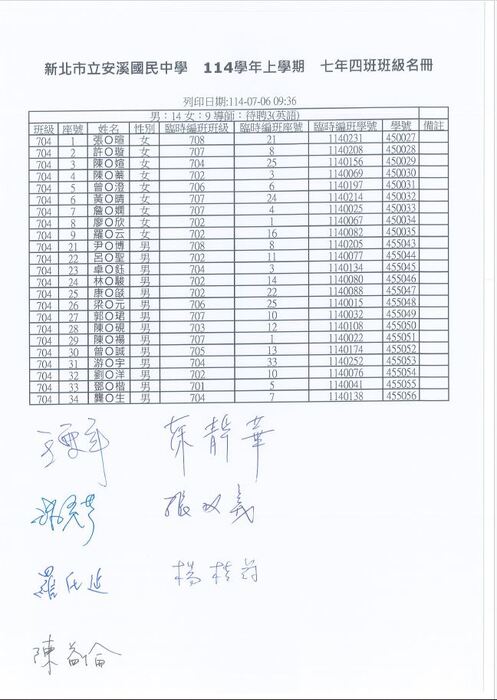 新北市立安溪國民中學 114學年上學期 七年四班班級名冊
列印日期:114-07-06 09:36
男：14 女：9 導師：待聘3(英語)
班級 座號 姓名 性別 臨時編班班級 臨時編班座號 臨時編班學號 學號 備註
704 1 張〇暄 女 708 21 1140231 450027
704 2 許〇璇 女 707 8 1140208 450028
704 3 陳〇媗 女 704 25 1140156 450029
704 4 陳〇蓁 女 702 3 1140069 450030
704 5 曾〇澄 女 706 6 1140197 450031
704 6 黃〇晴 女 707 24 1140214 450032
704 7 詹〇嫻 女 707 4 1140025 450033
704 8 廖〇欣 女 702 1 1140067 450034
704 9 羅〇云 女 702 16 1140082 450035
704 21 尹〇博 男 708 8 1140205 455043
704 22 呂〇聖 男 702 11 1140077 455044
704 23 卓〇鈺 男 704 3 1140134 455045
704 24 林〇駿 男 702 14 1140080 455046
704 25 康〇燄 男 702 22 1140088 455047
704 26 梁〇元 男 706 25 1140015 455048
704 27 郭〇珺 男 707 10 1140032 455049
704 28 陳〇硯 男 703 12 1140108 455050
704 29 陳〇褟 男 707 1 1140022 455051
704 30 曾〇誠 男 705 13 1140174 455052
704 31 游〇宇 男 704 33 1140252 455053
704 32 劉〇洋 男 702 10 1140076 455054
704 33 鄧〇楷 男 701 5 1140041 455055
704 34 龔〇生 男 704 7 1140138 455056
葉靜華
張以義
羅
楊桂
陳